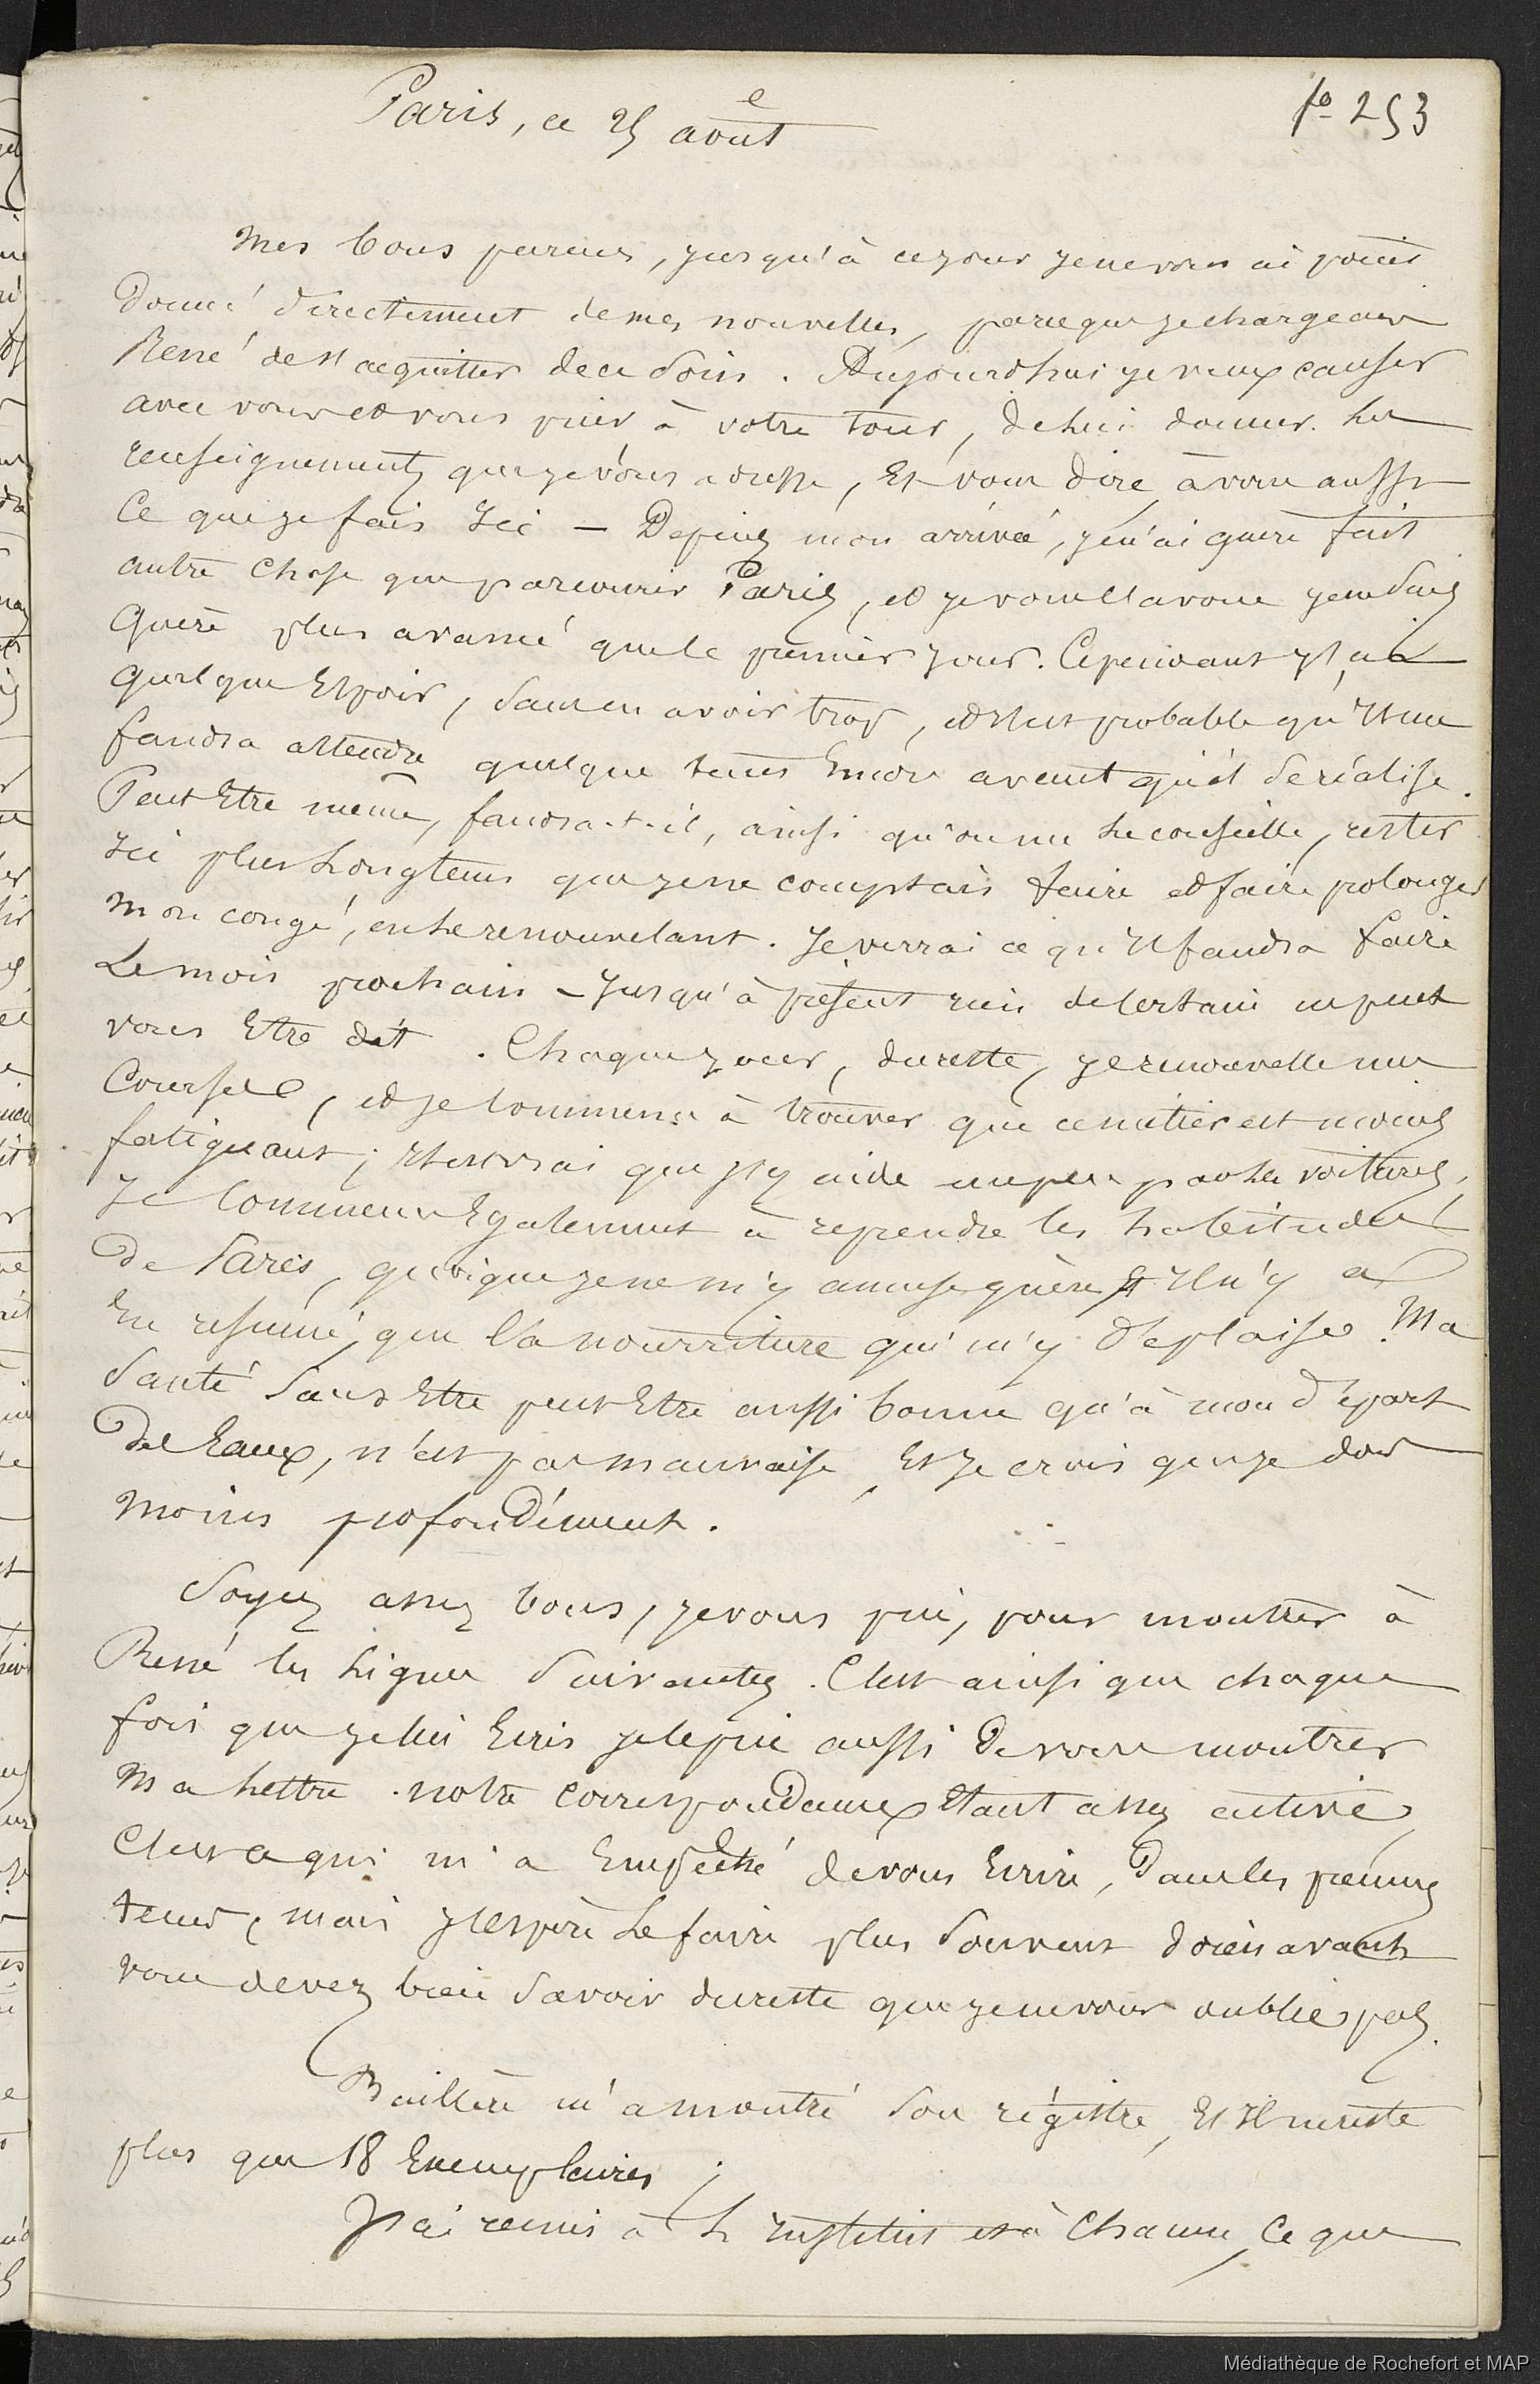 fo 253
Paris, ce 25e août
Mes bons parens, jusqu'à ce jour je ne vous ai point
donné directement de mes nouvelles, parceque je chargeais
René de s'acquitter de ce soin. Aujourdhui je veux causer
avec vous et vous prier à votre tour, de lui donner les
renseignements que je vous adresse, Et vous dire à vous aussi
Ce que je fais Ici — Depuis mon arrivée, je n'ai guère fait
autre chose que parcourir Paris, et je vous l'avoue je ne suis
Guère plus avancé que le premier jour. Cependant j'ai
quelque Espoir, sans en avoir trop, et il est probable qu'Il me
faudra attendre quelque tems Encore avant qu'il se réalise.
Peut Etre même, faudra-t-il, ainsi qu'on me le conseille, rester
Ici plus Longtems que je ne comptais faire et faire prolonger
Mon congé, en le renouvelant. Je verrai ce qu'Il faudra faire
Le mois prochain — Jusqu'à présent rien de Certain ne peut
vous Etre dit. Chaque jour, dureste, je renouvelle mes
Courses, et je Commence à trouver que ce métier est moins
fatiguant; Il est vrai que j'y aide un peu par les voitures,
Je Commence Egalement à reprendre les habitudes
De Paris, quoique je ne m'y amuse guère Et Il n'y a
En résumé, que la nourriture qui m'y déplaise. Ma
Santé Sans Etre peut Etre aussi bonne qu'à mon départ
Des Eaux, n'est pas mauvaise, Et Je crois que je dors
moins profondément.
Soyez assez bons, je vous prie, pour montrer à
René les Lignes Suivantes. C'est ainsi que chaque
fois que je lui Ecris je le prie aussi De vous montrer
Ma Lettre. Notre correspondance Etant assez active,
C'est ce qui m'a Empêché de vous Ecrire, Dans les premiers
tems, mais j'Espère Le faire plus Souvent dorénavant
vous devez bien Savoir dureste que je ne vous oublie pas.
Baillère m'a montré Son régistre, Et Il ne reste
plus que 18 Exemplaires;
J'ai remis à L'Institut et à Chaumu, Ce que
Médiathèque de Rochefort et MAP